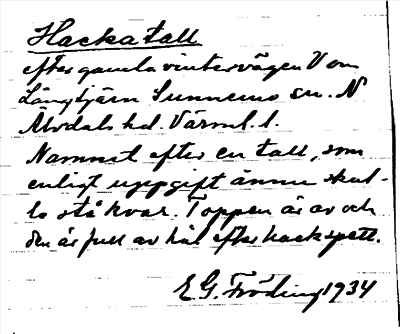 Hackatall
efter gamla vintervägen V om
Långtjärn Sunnemo sn. N
Älvdals hd. Värml. l.
Namnet efter en tall, som
enligt uppgift ännu skul-
le stå kvar. Toppen är av och
den är full av hål efter hackspett.
E G. Fröding 1934